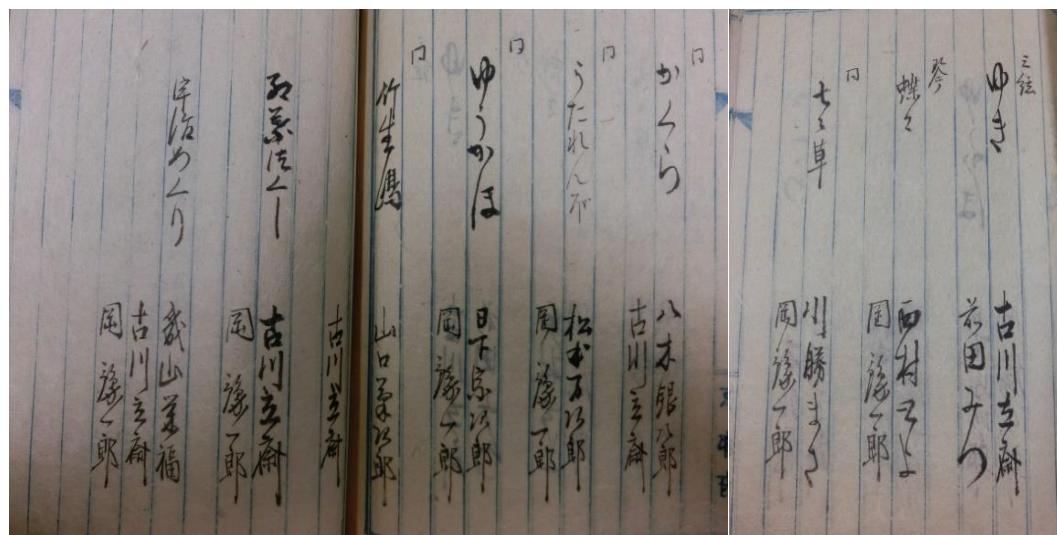 三絃
ゆき
古川立斎
前田みつ
琴
蝶々
西村とよ
岡藤一郎
同
七草
川勝まさ
岡藤一郎
同
かくら
八木銀次郎
古川立斎
同
うたれんぼ
松本万次郎
岡藤一郎
同
ゆうかほ
日下宗次郎
岡藤一郎
同
竹生島
山口
次郎
古川立斎
古川立斎
岡藤一郎
宇治めくり
山
福
古川立斎
岡藤一郎